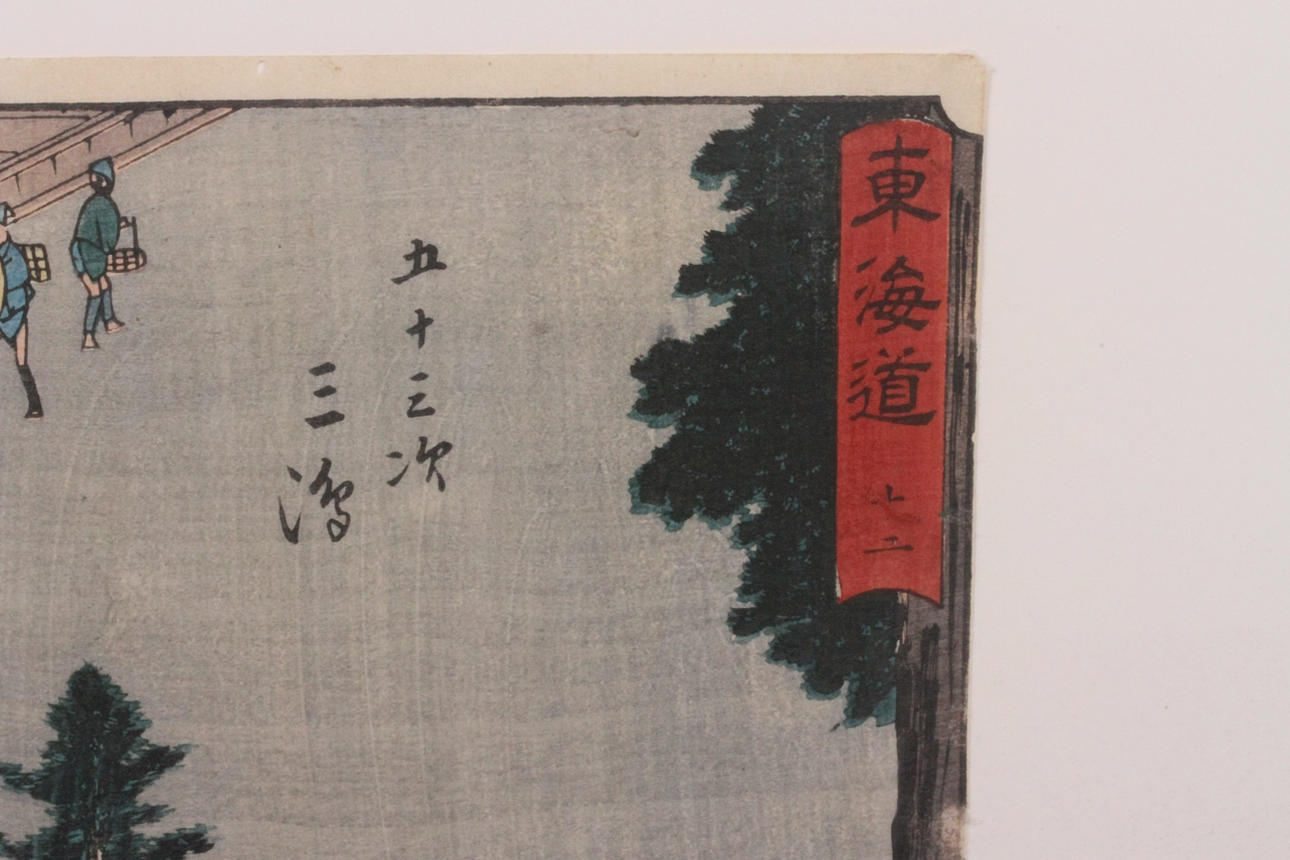 東海道 十二
五十三次
三嶋